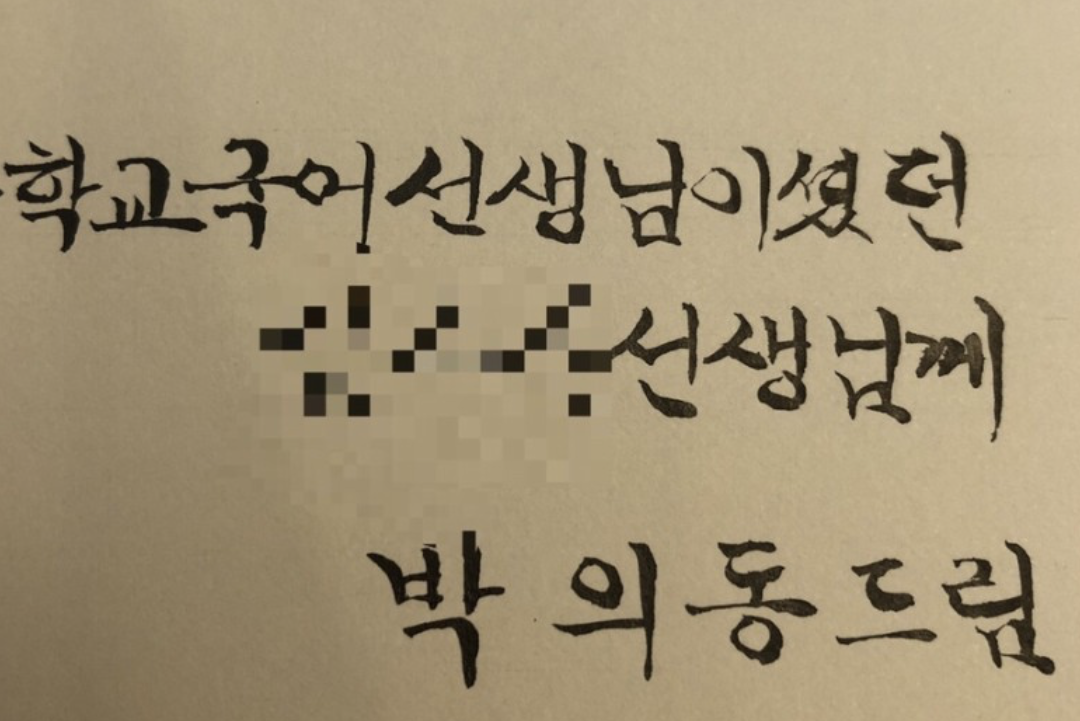 학교국어선생님이셨던
선생님께
박의동드림